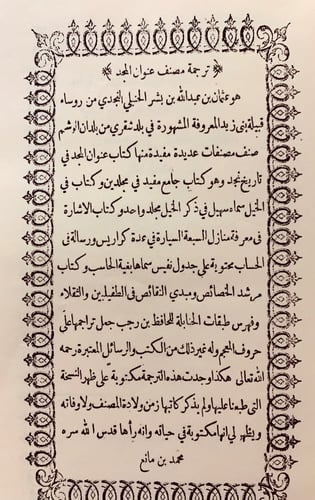 ﴿ ترجمة مصنف عنوان المجد ﴾
هو عثمان بن عبدالله بن بشر الحنبلي النجدي من روساء
قبيلة بنى زيد المعروفة المشهورة في بلد شقرى من بلدان الوشم
صنف مصنفات عديدة مفيدة منها كتاب عنوان المجد فى
تاريخ نجد وهو كتاب جامع مفيد في مجلدين و كتاب في
الخيل سماه سهيل فى ذكر الخيل مجلد واحد و كتاب الاشارة
فى معرفة منازل السبعة السيارة في عدة كراريس ورسالة فى
الحساب محتوية على جدول نفيس سماها بغية الحاسب و كتاب
مرشد الخصائص ومبدي النقائص فى الطفيلين والثقلاء
وفهرس طبقات الحنابلة للحافظ بن رجب جعل تراجمها على
حروف المعجم وله غير ذلك من الكتب والرسائل المعتبرة رحمه
الله تعالى هكذا وجدت هذه الترجمة مكتوبة على ظهر النسخة
التى طبعنا عليها ولم يذكر كاتبها زمن ولادة المصنف ولا وفاته
ويظهر لي انها مكتوبة فى حياته وانه رأها قدس الله سره
محمد بن مانع